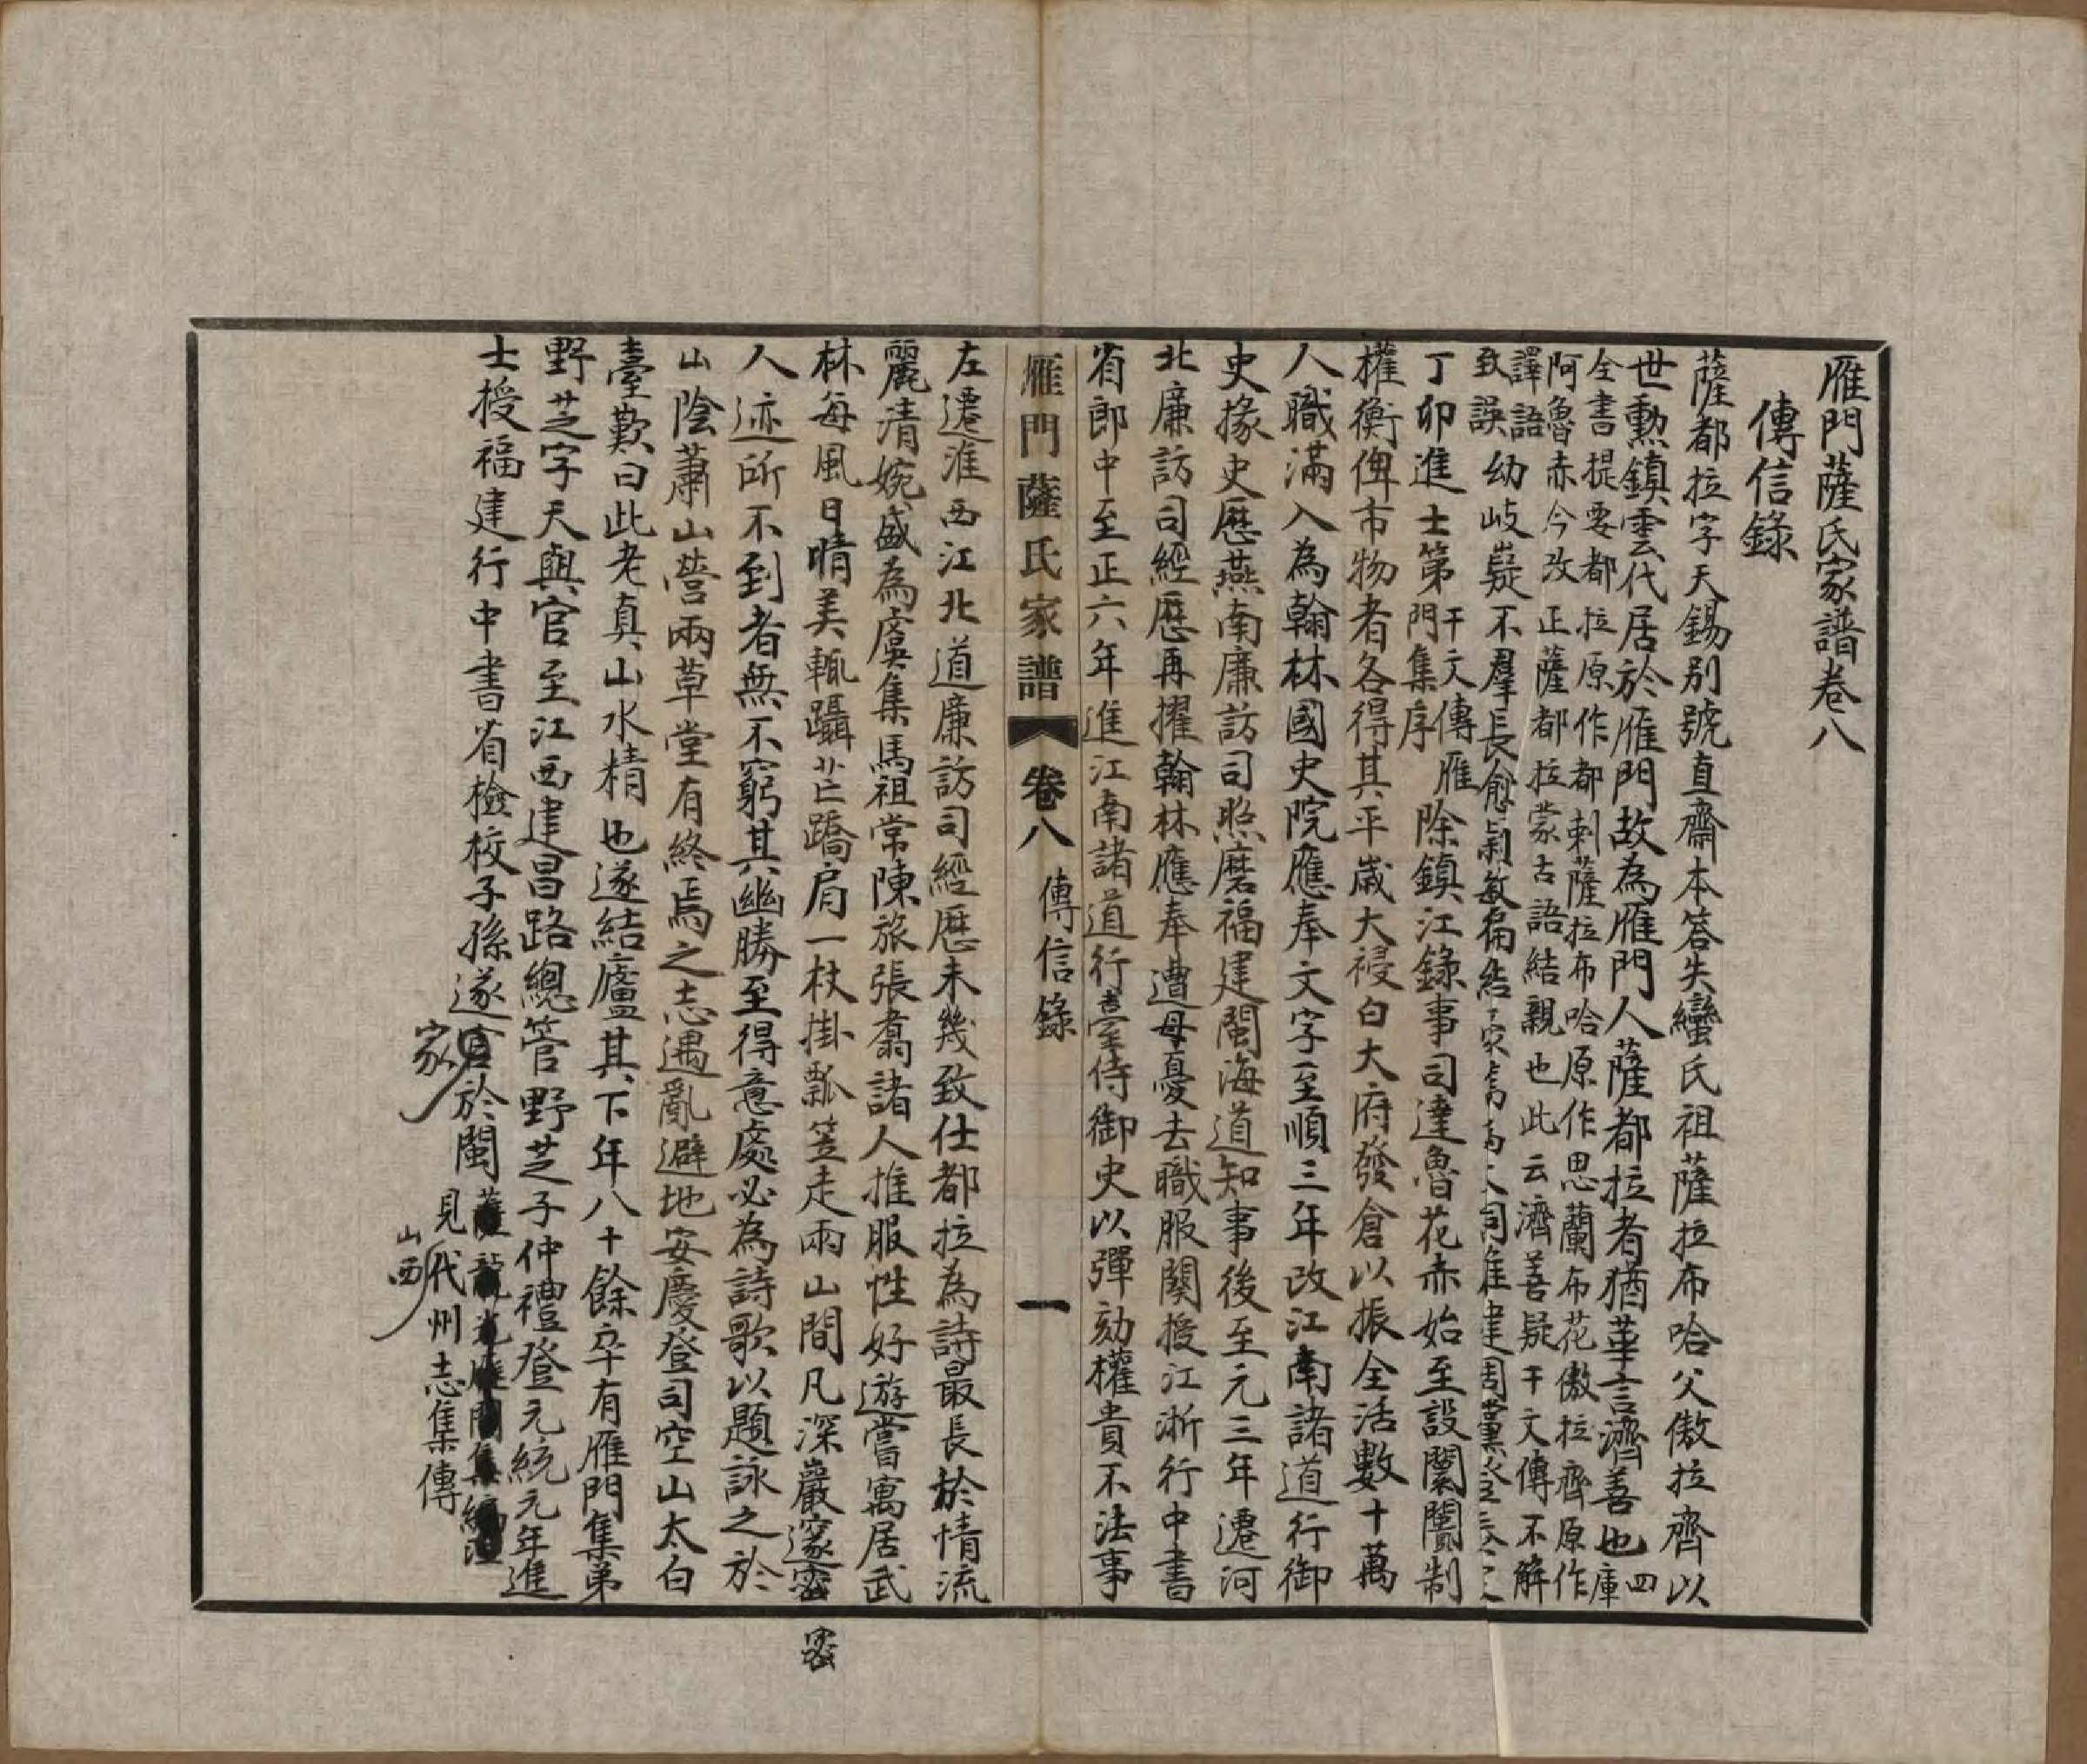 雁門薩氏家譜卷八
傳信錄
薩都拉字天錫別號直齋本答失蠻氏祖薩拉布哈父傲拉齊以
世勳鎮雲代居於雁門故為雁門人薩都拉者猶華言濟善也四庫
全書提要都拉原作都剌薩拉布哈原作思蘭布花傲拉齊原作
阿魯赤今改正薩都拉蒙古語結親也此云濟善疑干文傳不解
譯語
致誤幼岐嶷不羣長愈穎敏
丁卯進士第干文傳雁門集序除鎮江錄事司達魯花赤始至設闤闠制
權衡俾市物者各得其平歲大祲白大府發倉以振全活數十萬
人職滿入為翰林國史院應奉文字至順三年改江南諸道行御
史掾史歷燕南廉訪司照磨福建閩海道知事後至元三年遷河
北廉訪司經歷再擢翰林應奉遭母憂去職服闋授江浙行中書
省郎中至正六年進江南諸道行臺侍御史以彈劾權貴不法事
雁門薩氏家譜 卷八 傳信錄 一
左遷淮西江北道廉訪司經歷未幾致仕都拉為詩最長於情流
麗清婉盛為虞集馬祖常陳旅張翥諸人推服性好遊嘗寓居武
林每風日晴美輒躡芒蹻肩一杖掛瓢笠走兩山間凡深巖邃密
密
人迹所不到者無不窮其幽勝至得意處必為詩歌以題詠之於
山陰蕭山營兩草堂有終焉之志遇亂避地安慶登司空山太白
臺歎曰此老真山水精也遂結廬其下年八十餘卒有雁門集弟
野芝字天與官至江西建昌路總管野芝子仲禮登元統元年進
士授福建行中書省檢校子孫遂家於閩
見山西代州志集傳